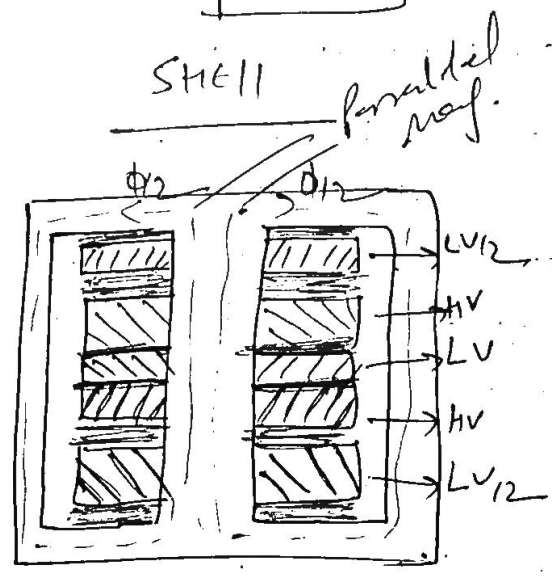 SHELL
Parallel
mag.
Φ/2 Φ/2
LV/2
HV
LV
HV
LV/2